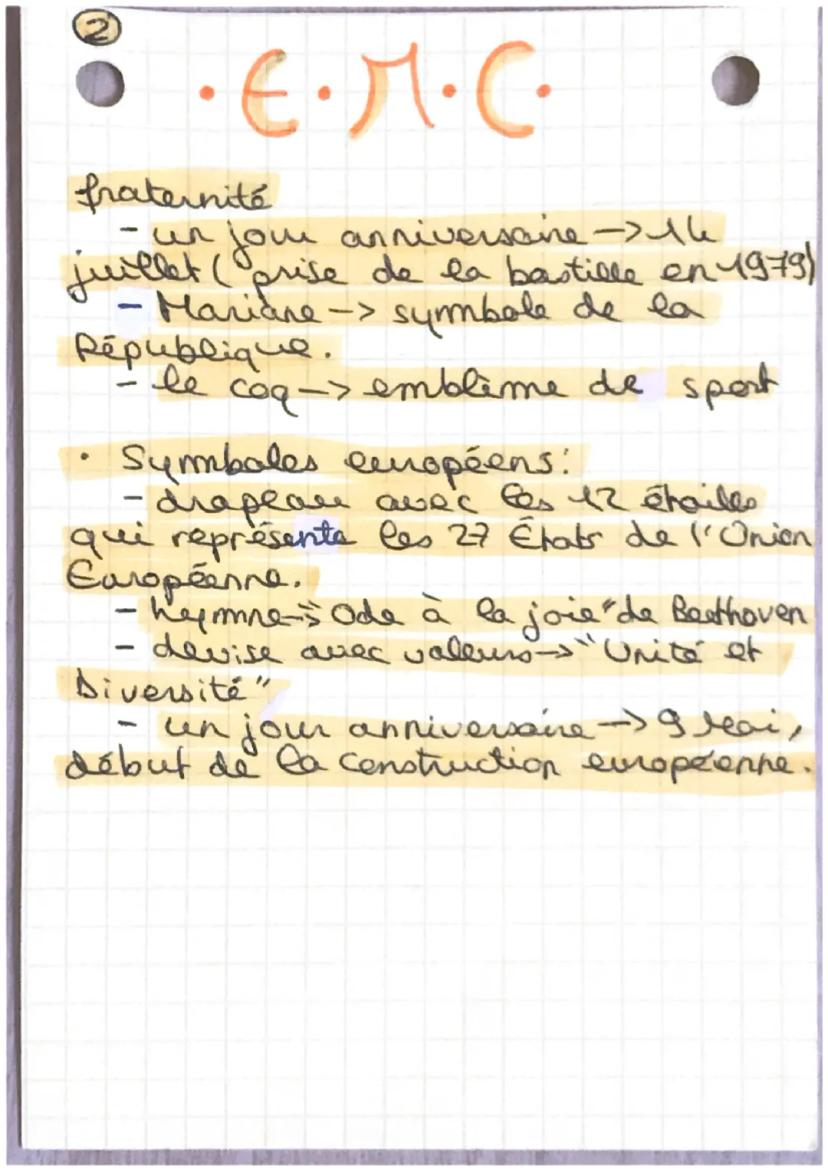 2
· E · M · C ·
fraternité
- un jour anniversaire -> 14
juillet ( prise de la bastille en 1979)
- Mariane -> symbole de la
République.
- le coq -> emblème de sport
• Symboles européens :
- drapeau avec les 12 étoiles
qui représente les 27 États de l'Union
Européenne.
- hymne -> "Ode à la joie" de Beethoven
- devise avec valeurs -> "Unité et
Diversité"
- un jour anniversaire -> 9 Mai,
début de la construction européenne.